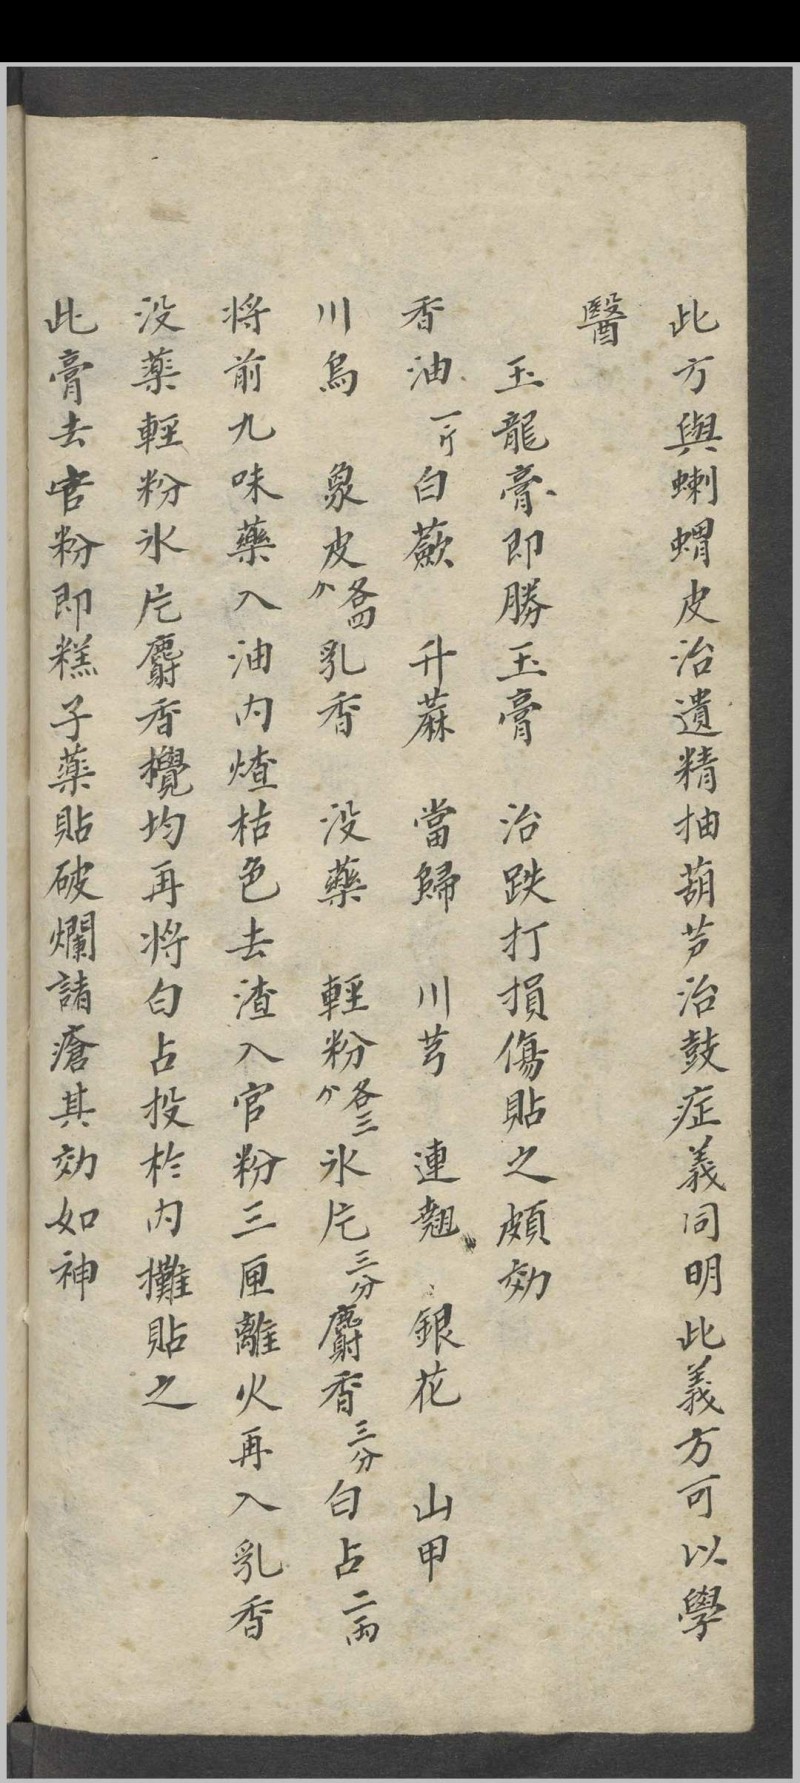 此方與蝲蝟皮治遺精抽葫芦治鼓症義同明此義方可以學
醫
玉龍膏即勝玉膏 治跌打損傷貼之頗効
香油一斤白蘞 升蔴 當歸 川芎 連翹 銀花 山甲
川烏 象皮各四分乳香 沒藥 輕粉各三分氷片三分麝香三分白占二兩
将前九味藥入油内煠枯色去渣入官粉三匣離火再入乳香
沒藥輕粉氷片麝香攪均再将白占投於内攤貼之
此膏去官粉即糕子藥貼破爛諸瘡其効如神